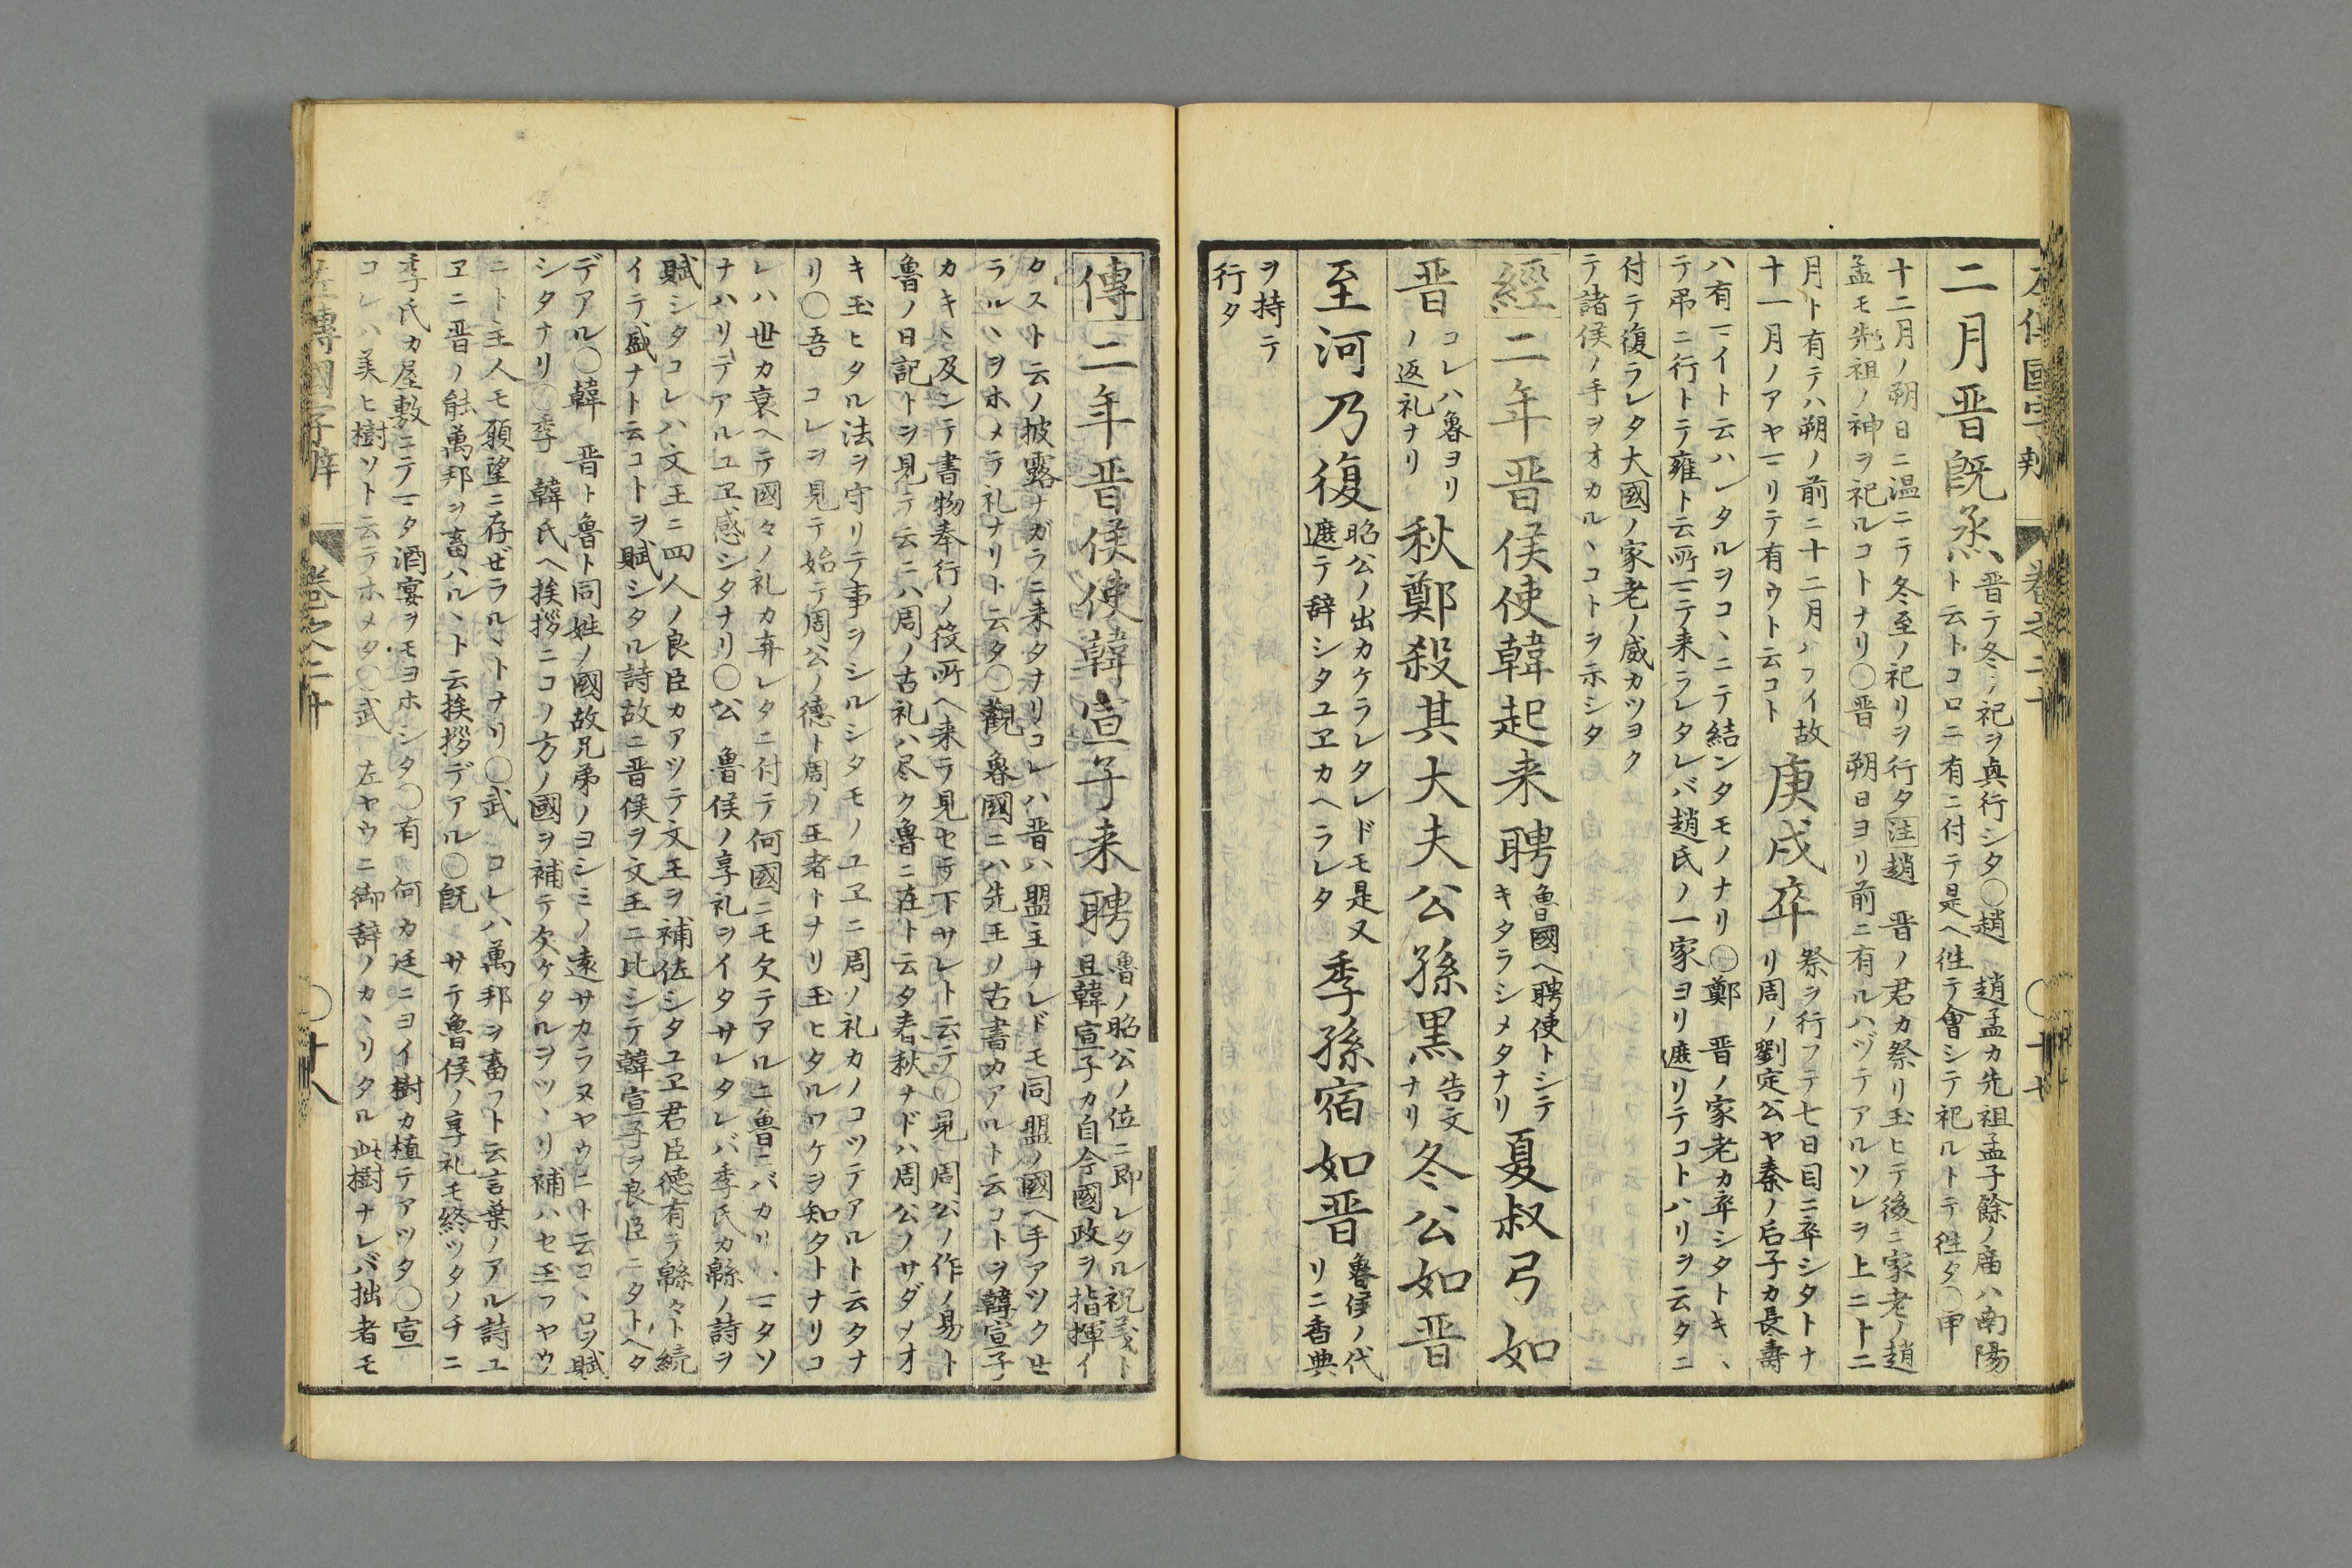 二月晋既烝
晋テ冬ノ祀ヲ眞行シタ〇趙 趙孟カ先祖孟子餘ノ廟ハ南陽
ト云トコロニ有ニ付テ是ヘ往テ會シテ祀ルトテ往タ〇甲
十二月ノ朔日ニ温ニテ冬至ノ祀リヲ行タ注趙 晋ノ君カ祭リ玉ヒテ後ニ家老ノ趙
孟モ先祖ノ神ヲ祀ルコトナリ〇晋 朔日ヨリ前ニ有ルハヅテアルソレヲ上ニ十二
月ト有テハ朔ノ前ニ十二月ハフイ故
十一月ノアヤマリテ有ウト云コト
庚戌卒
祭ヲ行フテ七日目ニ卒シタトナ
リ周ノ劉定公ヤ秦ノ后子カ長壽
ハ有マイト云ハレタルヲコヽニテ結ンタモノナリ〇鄭 晋ノ家老カ卒シタトキヽ
テ弔ニ行トテ雍ト云所マテ来ラレタレバ趙氏ノ一家ヨリ遮リテコトハリヲ云タニ
付テ復ラレタ大國ノ家老ノ威カツヨク
テ諸侯ノ手ヲオカルヽコトヲ示シタ
經二年晋侯使韓起来聘
魯國ヘ聘使トシテ
キタラシメタナリ
夏叔弓如
晋
コレハ魯ヨリ
ノ返礼ナリ
秋鄭殺其大夫公孫黒
告文
ナリ
冬公如晋
至河乃復
昭公ノ出カケラレタレドモ是又
遮テ辞シタユヱカヘラレタ
季孫宿如晋
魯侯ノ代
リニ香典
ヲ持テ
行タ
傳二年晋侯使韓宣子来聘
魯ノ昭公ノ位ニ即レタル祝義ト
且韓宣子カ自今國政ヲ指揮イ
タスト云ノ披露ナガラニ来タナリコレハ晋ハ盟主ナレドモ同盟ノ國ヘ手アツクせ
ラルヽヲホメテ礼ナリト云タ〇觀 魯國ニハ先王ノ古書カアルト云コトヲ韓宣子
カキヽ及ンテ書物奉行ノ役所ヘ来テ見セテ下サレト云テ〇見 周公ノ作ノ易ト
魯ノ日記トヲ見テ云ニハ周ノ古礼ハ尽ク魯ニ在ト云タ春秋ナドハ周公ノサダメオ
キ玉ヒタル法ヲ守リテ事ヲシルシタモノユヱニ周ノ礼カノコツテアルト云タナ
リ〇吾 コレヲ見テ始テ周公ノ德ト周ノ王者トナリ玉ヒタルワケヲ知タトナリコ
レハ世カ衰ヘテ國々ノ礼カ弃レタニ付テ何國ニモ欠テアルニ魯ニバカリマタソ
ナハリテアルユヱ感シタナリ〇公 魯侯ノ享礼ヲイタサレタレバ季氏カ緜ノ詩ヲ
賦シタコレハ文王ニ四人ノ良臣カアツテ文王ヲ補佐シタユヱ君臣德有テ緜々ト続
イテ盛ナト云コトヲ賦シタル詩故ニ晋侯ヲ文王ニ比シテ韓宣子ヲ良臣ニタトヘタ
デアル〇韓 晋ト魯ト同姓ノ國故兄弟ノヨシミノ遠サカラヌヤウニト云コヽロヲ賦
シタナリ〇季 韓氏ヘ挨拶ニコノ方ノ國ヲ補テ欠ケタルヲツヽリ補ハセ玉フヤウ
ニト主人モ願望ニ存ぜラルヽトナリ〇武 コレハ萬邦ヲ畜フト云言葉ノアル詩ユ
ヱニ晋ノ能萬邦ヲ畜ハルヽト云挨拶デアル〇既 サテ魯侯ノ享礼モ終ツタノチニ
季氏カ屋敷ニテマタ酒宴ヲモヨホシタ〇有 何カ廷ニヨイ樹カ植テアツタ〇宣
コレハ美ヒ樹ソト云テホメタ〇武 左ヤウニ御辞ノカヽリタル此樹ナレバ拙者モ
左傳國字辯 卷之二十 〇十八